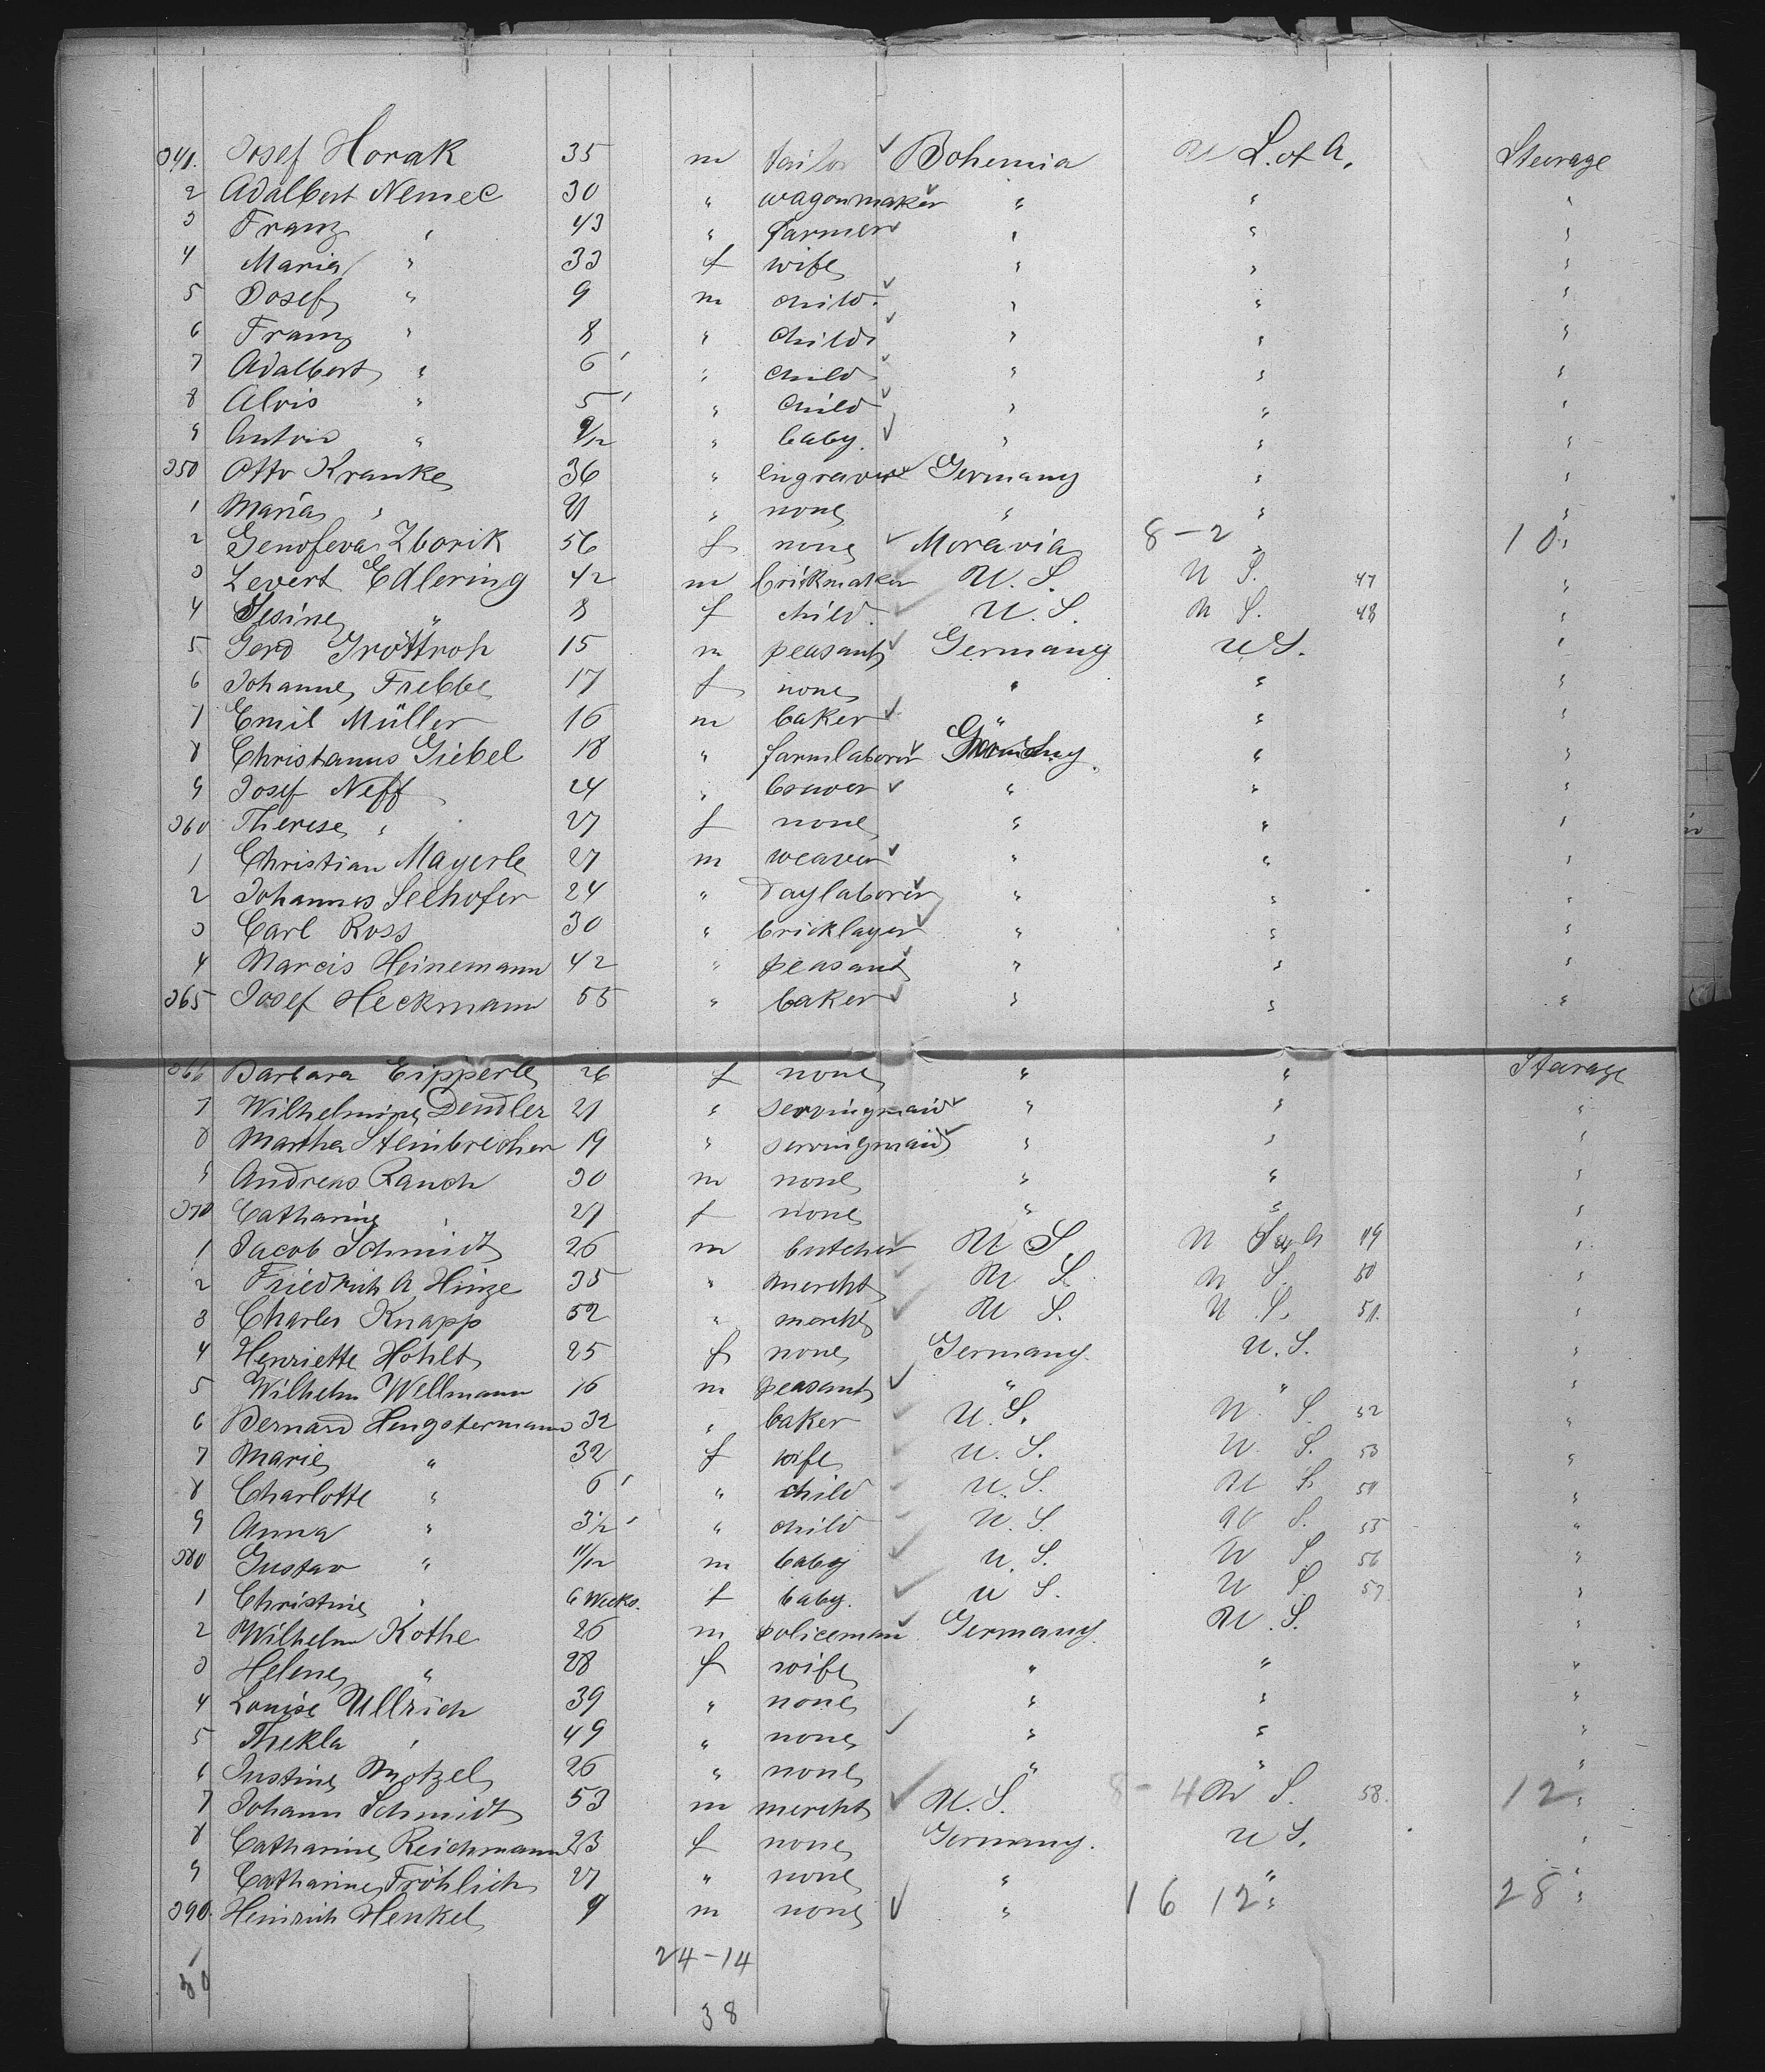 341. Josef Horak 35 m tailor Bohemia U S. of A. Steerage
2 Adalbert Nemec 30 " wagonmaker " " "
3 Franz " 43 " farmer " " "
4 Maria " 33 f wife " " "
5 Josef " 9 m child " " "
6 Franz " 8 " child " " "
7 Adalbert " 6 " child " " "
8 Alois " 5 " child " " "
9 Anton " 9/12 " baby. " " "
350 Otto Kranke 36 " engraver Germany " "
1 Maria " 21 " none " " "
2 Genofeva Zborik 56 f none Moravia 8-2 " 10 "
3 Levert Edlering 42 m brickmaker U. S. U S. 47 "
4 Gesine " 8 f child. U. S. U S. 48 "
5 Gerd Grottroh 15 m peasant Germany U S. "
6 Johanne Frebbe 17 f none " " "
7 Emil Müller 16 m baker " " "
8 Christianus Giebel 18 " farmlaborer Germany. " "
9 Josef Neff 24 " brewer " " "
360 Therese " 27 f none " " "
1 Christian Mayerle 27 m weaver " " "
2 Johannes Seehofer 24 " daylaborer " " "
3 Carl Ross 30 " bricklayer " " "
4 Marcis Heinemann 42 " peasant " " "
365 Josef Heckmann 55 " baker " " "
366 Barbara Eipperle 26 f none " " Steerage
7 Wilhelmine Dendler 21 " servingmaid " " "
8 Martha Steinbrecher 19 " servingmaid " " "
9 Andreas Rauch 30 m none " " "
370 Catharine " 27 f none " " "
1 Jacob Schmidt 26 m butcher U S. U S 49 "
2 Friedrich A. Hinze 35 " mercht U S. U S. 50 "
3 Charles Knapp 52 " mercht U S. U. S. 51. "
4 Henriette Hohlt 25 f none Germany. U. S. "
5 Wilhelm Wellmann 16 m peasant " " "
6 Bernard Hengstermann 32 " baker U. S. U. S. 52 "
7 Marie " 32 f wife U. S. U. S. 53 "
8 Charlotte " 6 " child U. S. U S. 54 "
9 Anna " 3 1/2 " child U. S. U S. 55 "
380 Gustav " 11/12 m baby U. S. U S. 56 "
1 Christine " 6 Weeks. f baby. U S. U S. 57 "
2 Wilhelm Kothe 26 m policeman Germany. U. S. "
3 Helene " 28 f wife " " "
4 Louise Ullrich 39 " none " " "
5 Thekla " 49 " none " " "
6 Justine Motzel 26 " none " " "
7 Johann Schmidt 53 m mercht U. S. 8-4 U S. 58. 12 "
8 Catharine Reichmann 23 f none Germany. U S. "
9 Catharine Fröhlich 27 " none " " "
390. Heinrich Henkel 9 m none " 16 12 " 28 "
24-14
38